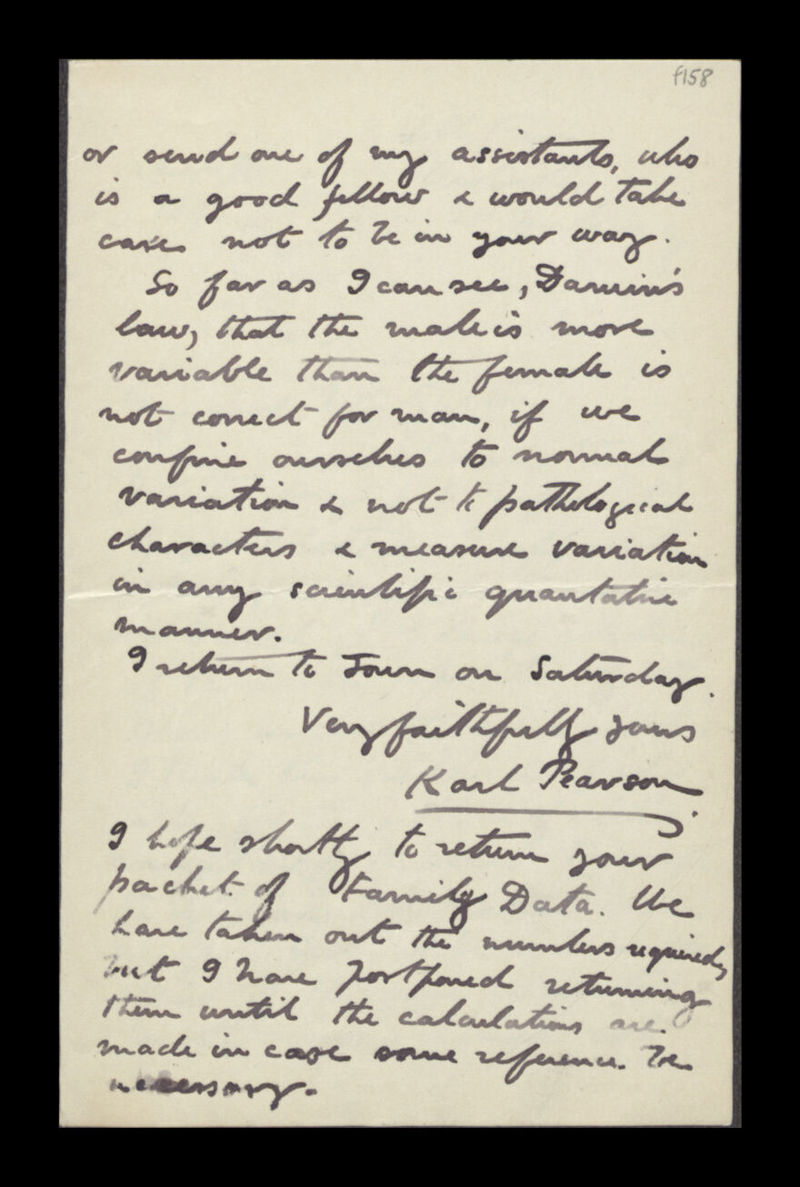 f158
or send one of my assistants, who
is a good fellow & would take
care not to be in your way.
So far as I can see, Darwin's
law, that the male is more
variable than the female is
not correct for man, if we
confine ourselves to normal
variation & not to pathological
characters & measure variation
in any scientific quantative
manner.
I return to Town on Saturday.
Very faithfully yours
Karl Pearson.
I hope shortly to return your
packet of Family Data. We
have taken out the numbers required,
but I have postponed returning
them until the calculations are
made in case some reference be
necessary.